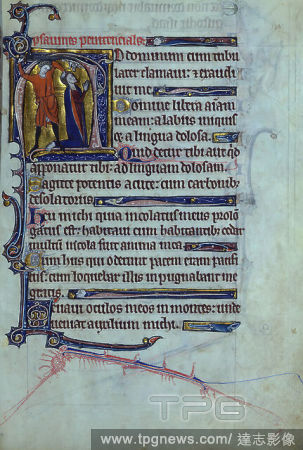 D dominum cum tribu
larer clamaui: et exaudi
uit me. Domine libera aīam
meam: a labiis iniquis
et a lingua dolosa.
Quid detur tibi aut qd
apponatur tibi: ad linguam dolosam.
Sagitte potentis acute: cum carbonib;
desolatoriis.
Heu michi quia incolatus meus prolon
gatus est: habitaui cum habitantib; cedar
multum incola fuit anima mea.
Cum hiis qui oderunt pacem eram paci
ficus: cum loquebar illis inpugnabant me
gratis.
Leuaui occulos meos in montes: unde
ueniat auxilium michi.
TPG
www.tpgnews.com/達志影像